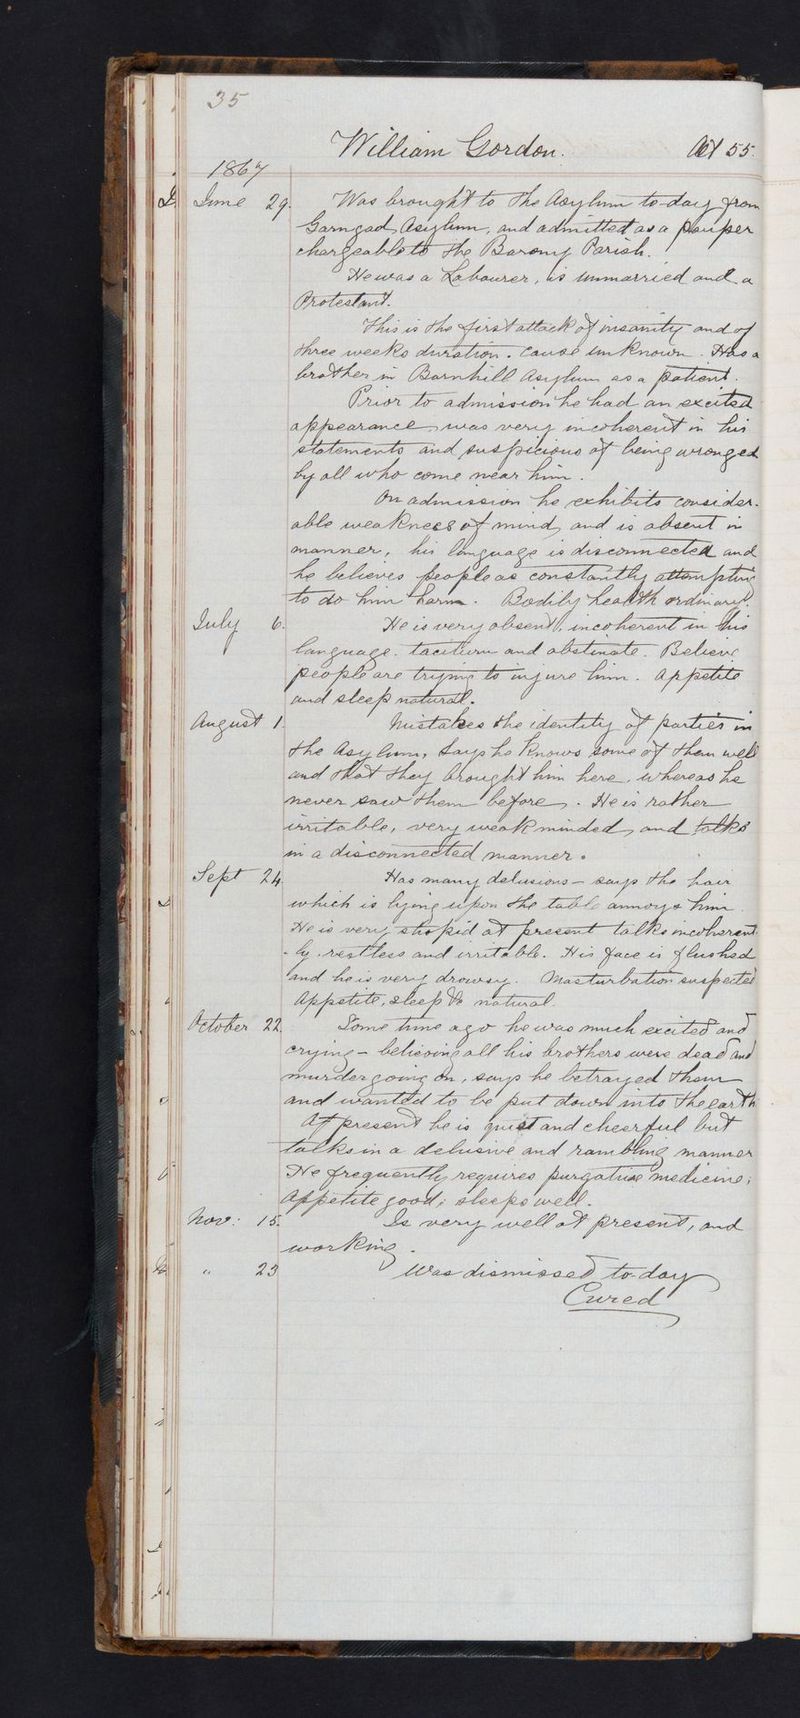 35
William Gordon. Aet 55.
1867
June 29. Was brought to the Asylum to-day from
Garngad Asylum, and admitted as a pauper
chargeable to the Barony Parish.
He was a Labourer, is unmarried and a
Protestant.
This is the first attack of insanity and of
three weeks duration. Cause unknown. Has a
brother in Barnhill Asylum as a patient.
Prior to admission he had an excited
appearance, was very incoherent in his
statements and suspicious of being wronged
by all who come near him.
On admission he exhibits consider-
able weakness of mind, and is absent in
manner, his language is disconnected and
he believes people as constantly attempting
to do him harm. Bodily health ordinary.
July 6. He is very absent, incoherent in his
language. taciturn and obstinate. Believes
people are trying to injure him. Appetite
and sleep natural.
August 1. Mistakes the identity of parties in
the Asylum, says he knows some of them well
and that they brought him here, whereas he
never saw them before. He is rather
irritable, very weak minded, and talks
in a disconnected manner.
Sept 24. Has many delusions - says the hair
which is lying upon the table annoys him.
He is very stupid at present talks incoherent
-ly, restless and irritable. His face is flushed
and he is very drowsy. Masturbation suspected
Appetite, sleep &c natural.
October 22. Some time ago he was much excited and
crying - believing all his brothers were dead and
murder going on, says he betrayed them
and wanted to be put down into the earth
At present he is quiet and cheerful but
talks in a delusive and rambling manner
He frequently requires purgative medicine;
Appetite good; sleeps well.
Nov: 15. Is very well at present, and
working.
" 23 Was dismissed to-day
Cured